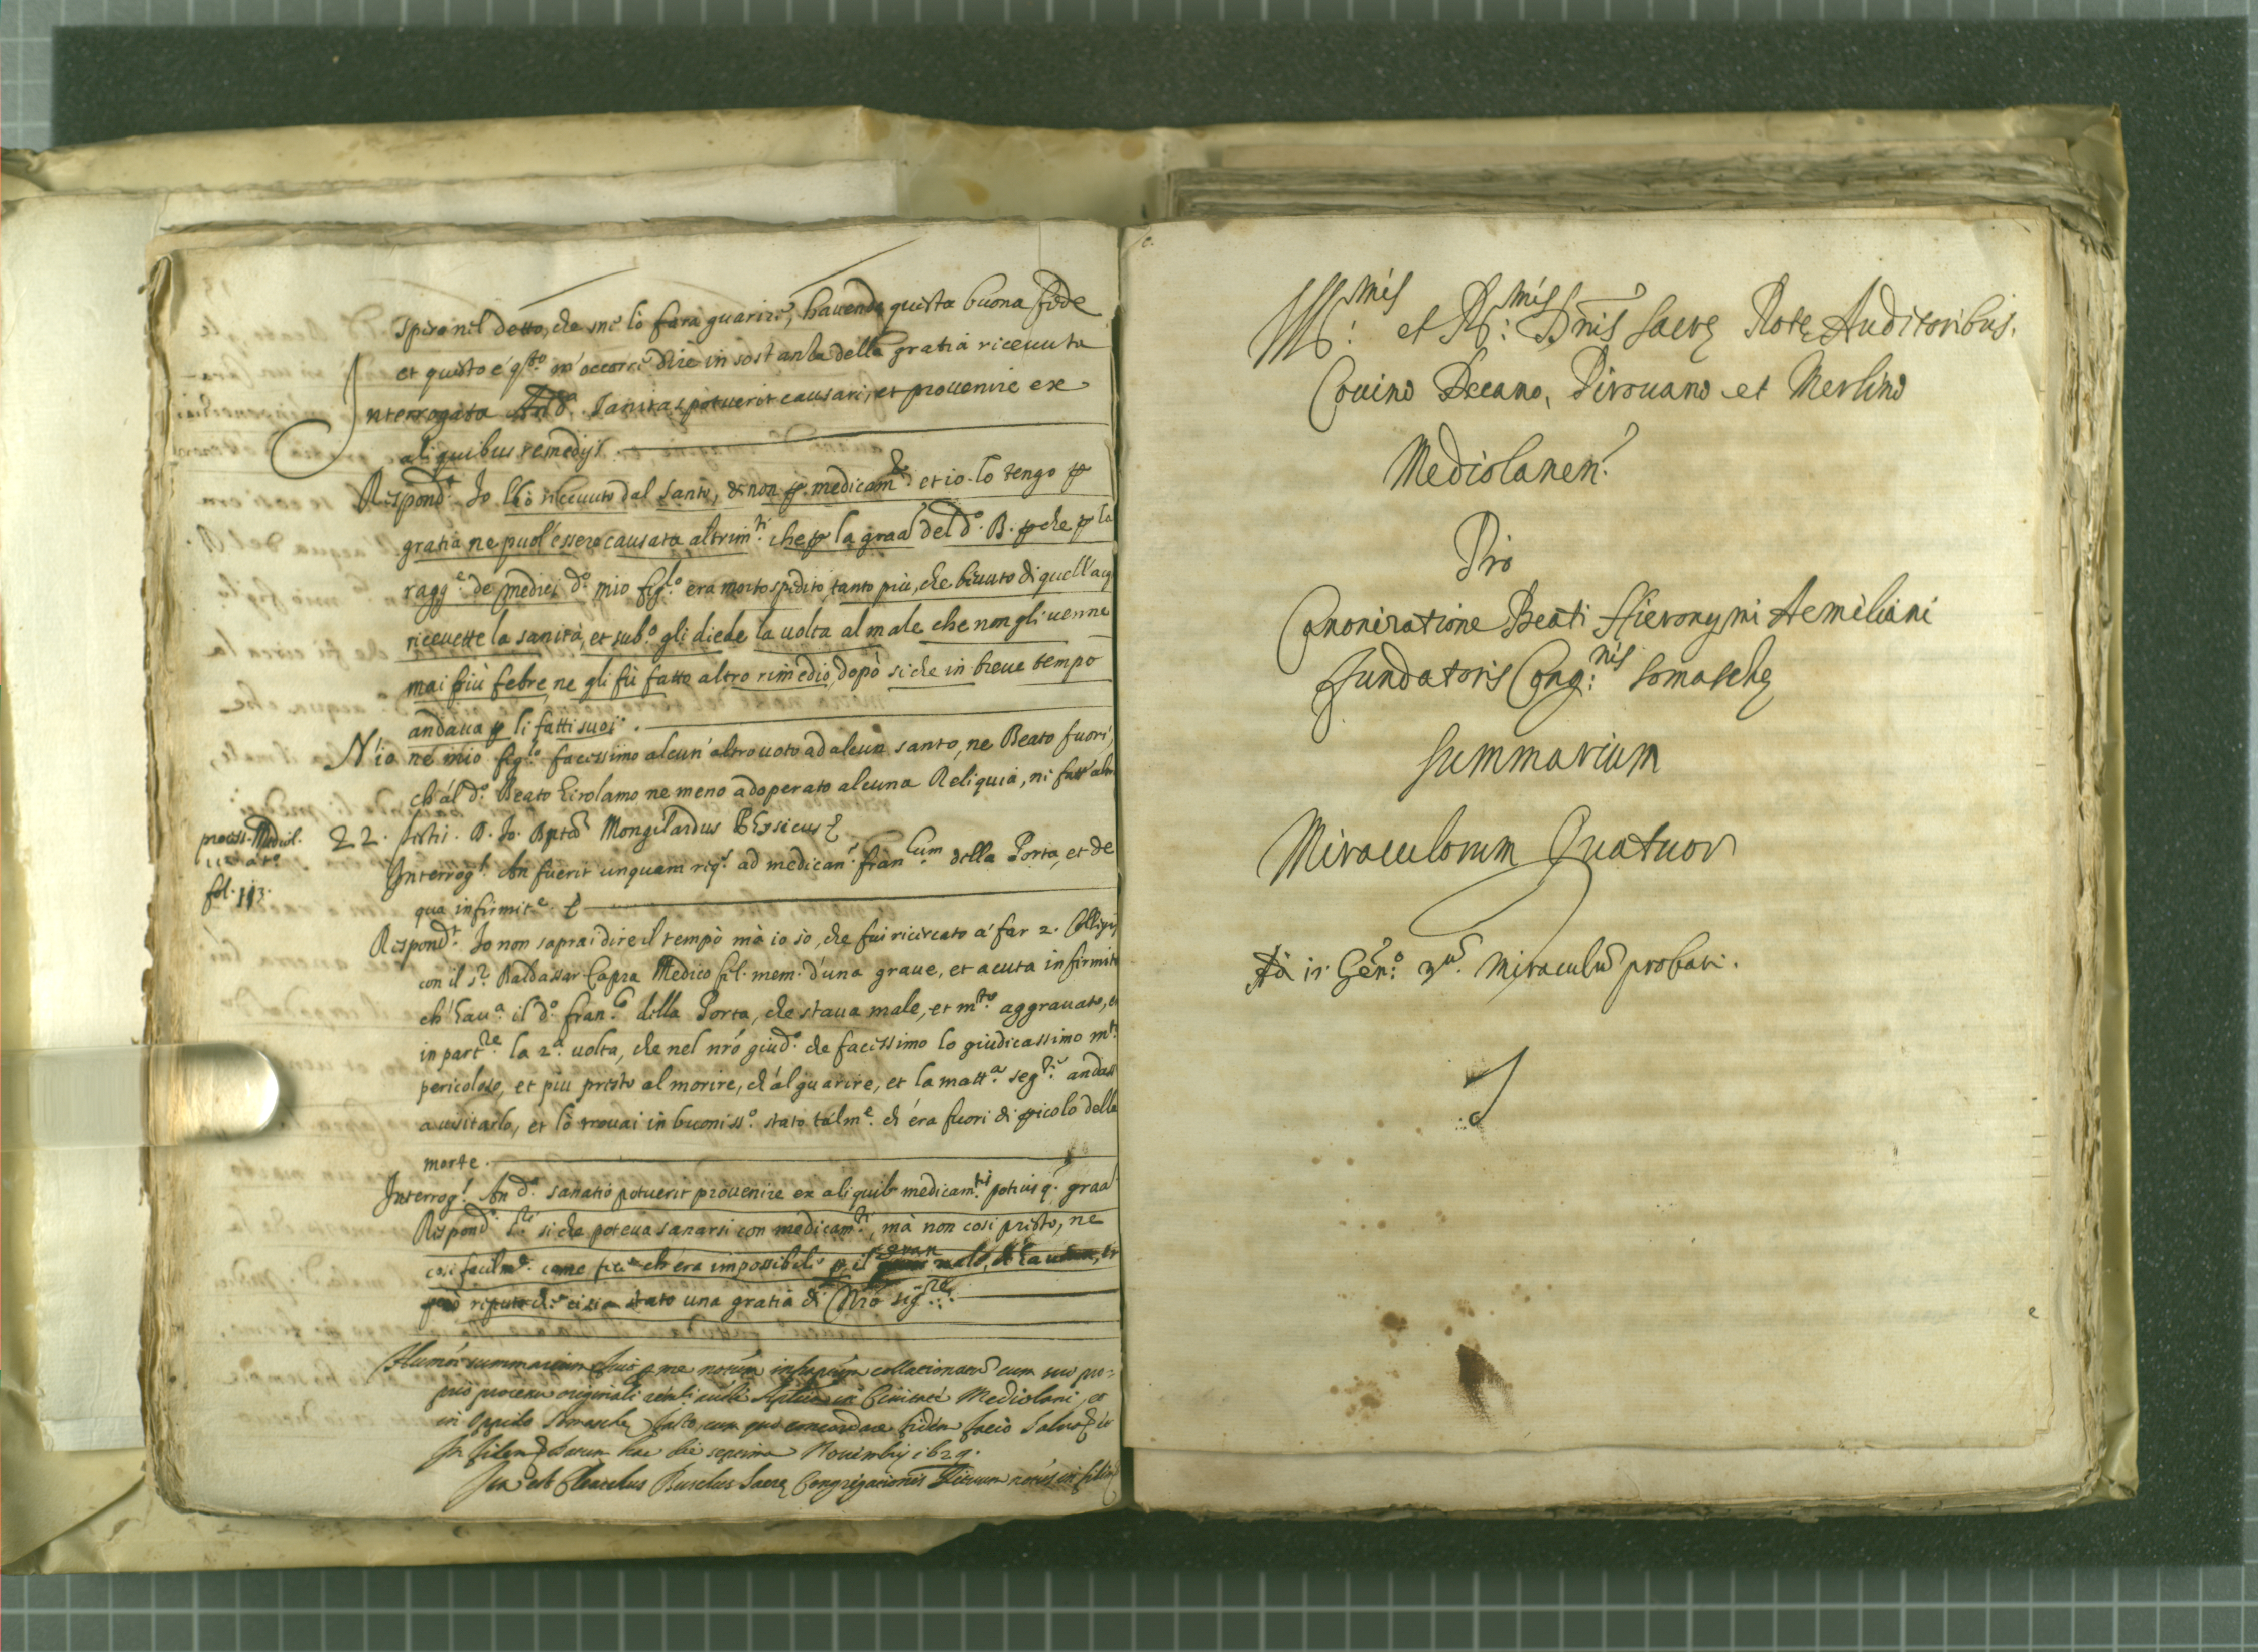 spiro nel detto, che me lo fara guarire, havendo questa buona fede
et questo é q.to m'occorre dire in sostanza della gratia riceuuta
Interrogata An d.a sanitas potuerit causari, et prouenire ex
aliquibus remedijs.
Respond.t Io l'hò riceuuto dal santo, & non p. medicam.to et io lo tengo p
gratia ne puol'essere causata altrim.ti che p la graã del d.o B. p che p la
de medici d.o mio fig.lo era morto spedito, tanto più, che beuuto di quell'acq
riceuette la sanità, et sub.o gli diede la uolta al male che non gli uenne
mai più febre, ne gli fù fatto altro rimedio, dopò si che in breue tempo
andaua p li fatti suoi.
N'io ne mio fig.lo facessimo alcun'altro uoto ad alcun santo, ne Beato fuori,
ch'al d.o Beato Girolamo ne meno adoperato alcuna Reliquia, ni fatt'altro
process. Mediol.
fol. 113.
22. testis. D. Io. Bpta Mongilardus Phisicus
Interrog.t An fuerit unquam req.s ad medican.m fran.cum della Porta, et de
qua infirmit.e
Respond.t Io non saprai dire il tempò mà io sò, che fui ricercato a far 2. Collegij
con il s.r Baldassar Capra Medico fel. mem. d'una graue, et acuta infirmità
ch'hau.a il d.o fran.co della Porta, che staua male, et m.to aggrauato, et
in part.re la 2.a uolta, che nel nrõ giud.o che facessimo lo giudicassimo m.to
pericoloso, et piu presto al morire, ch'al guarire, et la matt.a seg.te andassi
a uisitarlo, et lò trouai in buoniss.o stato talm.e ch'era fuori di picolo della
morte.
Interrog.t An d.a sanatio potuerit prouenire ex aliquib medicam.tis potius q. graã
Respond. si che poteua sanarsi con medicam.ti, mà non cosi presto, ne
cosi facilm.e come fece ch'era impossibile p il gran male,
però reputo che ci sia stato una gratia di Nrõ Sig.re
summarium fuit p me notum infrãptum collationatũ cum suo pro-
prio processu originali in Ciuitate Mediolani, et
in oppido Somasche facto, cum quo concordare fidem facio saluo
In fidem datum hac die septima Nouembris 1629.
Ita est Busclus Sacrę Congregationis Rituum notus
Ill.mis et R.mis Dnis Sacrę Rotę Auditoribus.
Couino Decano, Pirouano et Merlino
Mediolanen.
Pro
Canonizatione Beati Hieronymi Aemiliani
Fundatoris Cong.nis Somaschę
Summarium
Miraculorum Quatuor
miraculũ probati.